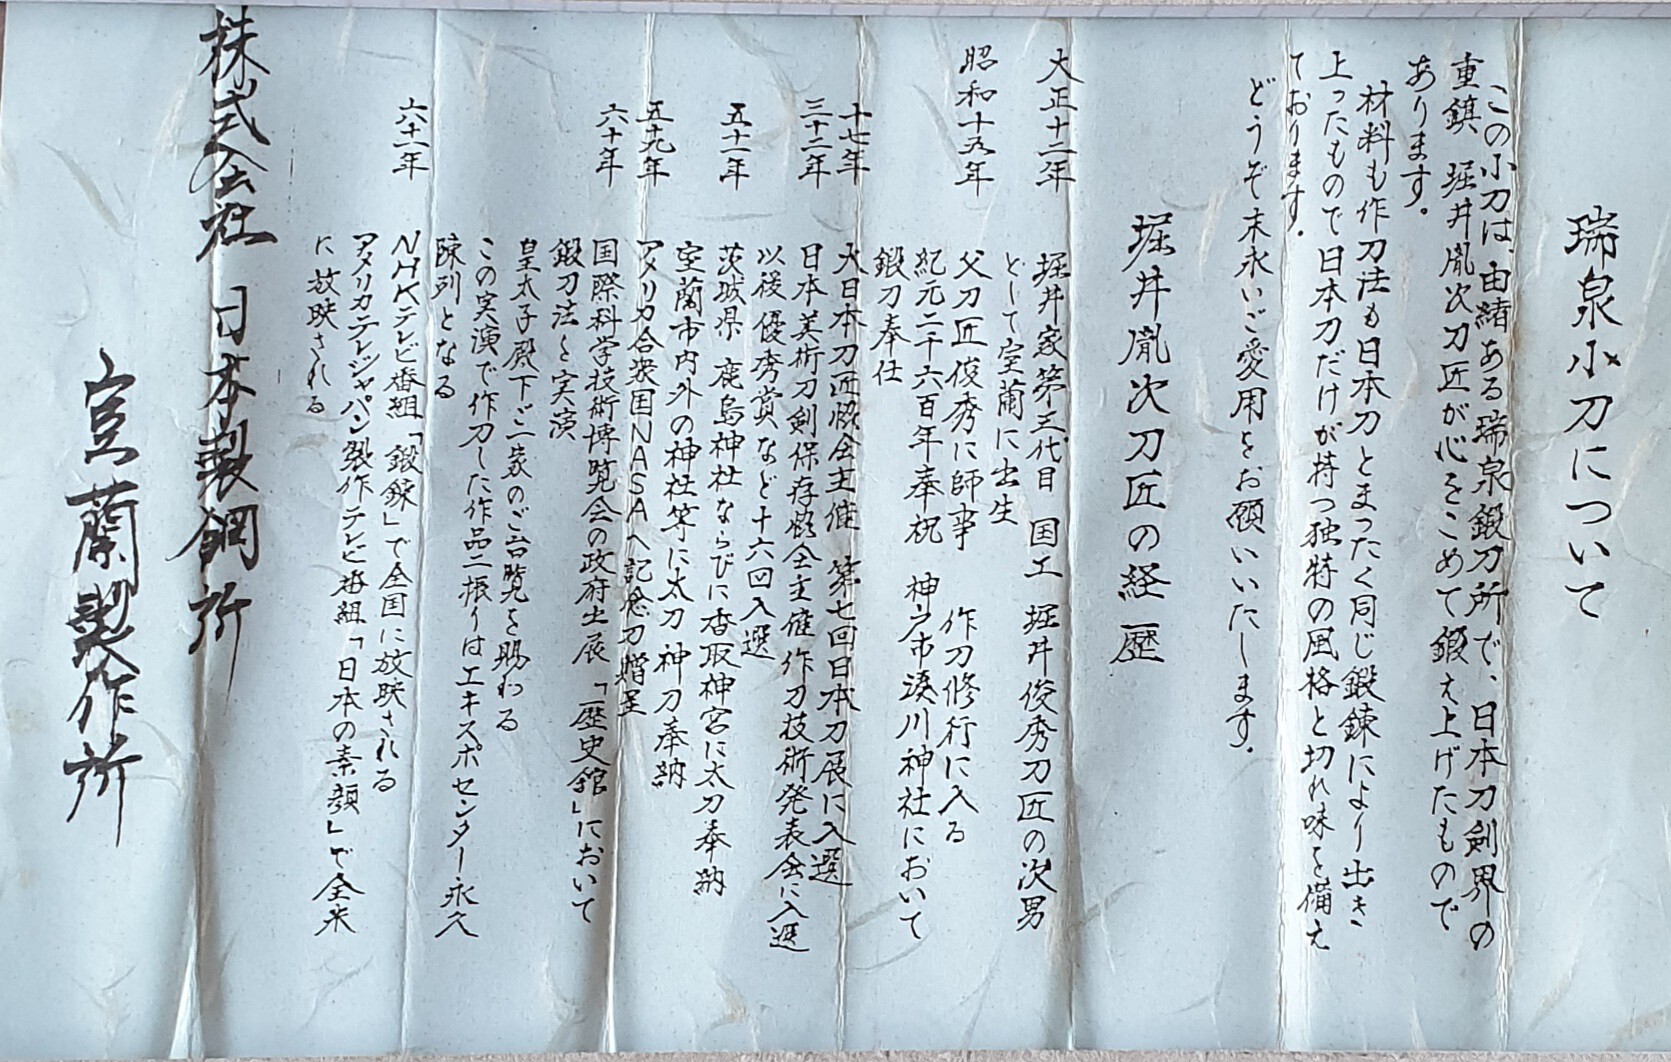 瑞泉小刀について
この小刀は、由緒ある瑞泉鍛刀所で、日本刀剣界の
重鎮 堀井胤次刀匠が心をこめて鍛え上げたもので
あります。
材料も作刀法も日本刀とまったく同じ鍛錬により出き
上ったもので日本刀だけが持つ独特の風格と切れ味を備え
ております。
どうぞ末永いご愛用をお願いいたします。
堀井胤次刀匠の経歴
大正十二年 堀井家第三代目 国工 堀井俊秀刀匠の次男
として室蘭に出生
昭和十五年 父刀匠俊秀に師事 作刀修行に入る
紀元二千六百年奉祝 神戸市湊川神社において
鍛刀奉仕
十七年 大日本刀匠協会主催 第七回日本刀展に入選
三十二年 日本美術刀剣保存協会主催作刀技術発表会に入選
以後優秀賞など十六回入選
五十一年 茨城県 鹿島神社ならびに香取神宮に太刀奉納
室蘭市内外の神社等に太刀 神刀奉納
五十九年 アメリカ合衆国NASAへ記念刀贈呈
六十年 国際科学技術博覧会の政府出展「歴史館」において
鍛刀法を実演
皇太子殿下ご一家のご台覧を賜わる
この実演で作刀した作品二振りはエキスポセンター永久
陳列となる
六十一年 NHKテレビ番組「鍛錬」で全国に放映される
アメリカテレジャパン製作テレビ番組「日本の素顔」で全米
に放映される
株式会社 日本製鋼所
室蘭製作所